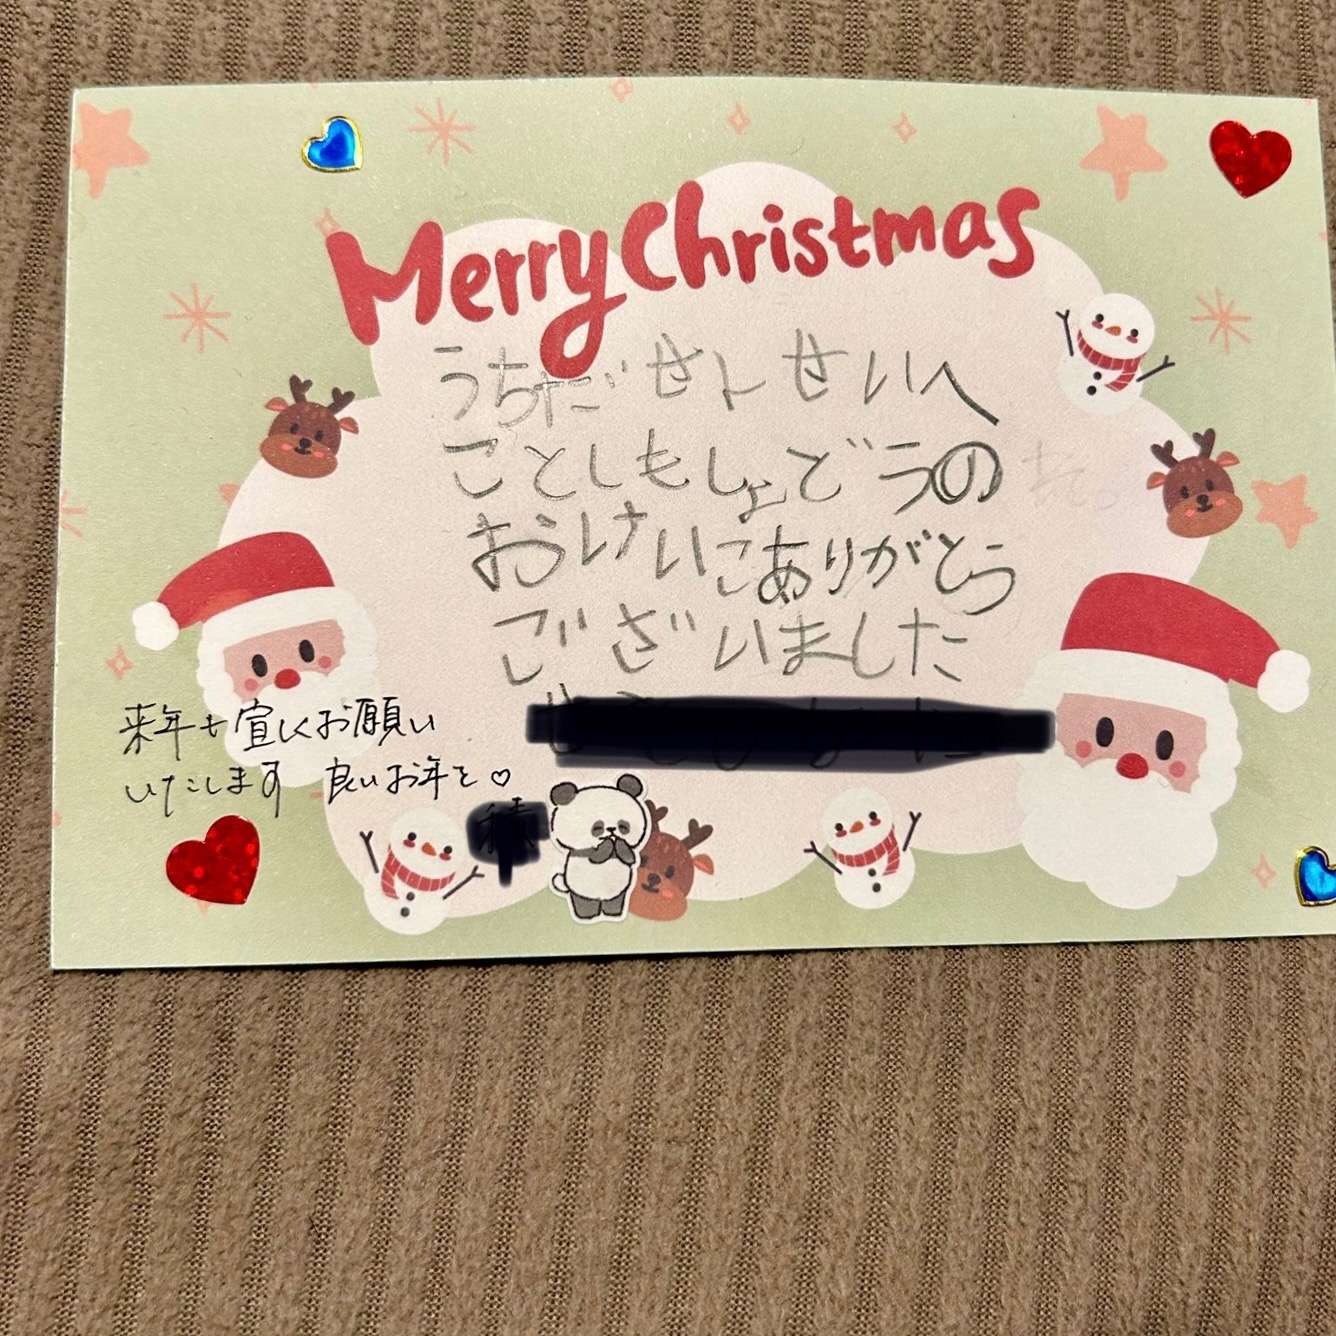 Merry Christmas
うちだせんせいへ
ことしもしょどうの
おけいこありがとう
ございました
来年も宜しくお願い
いたします 良いお年を♡